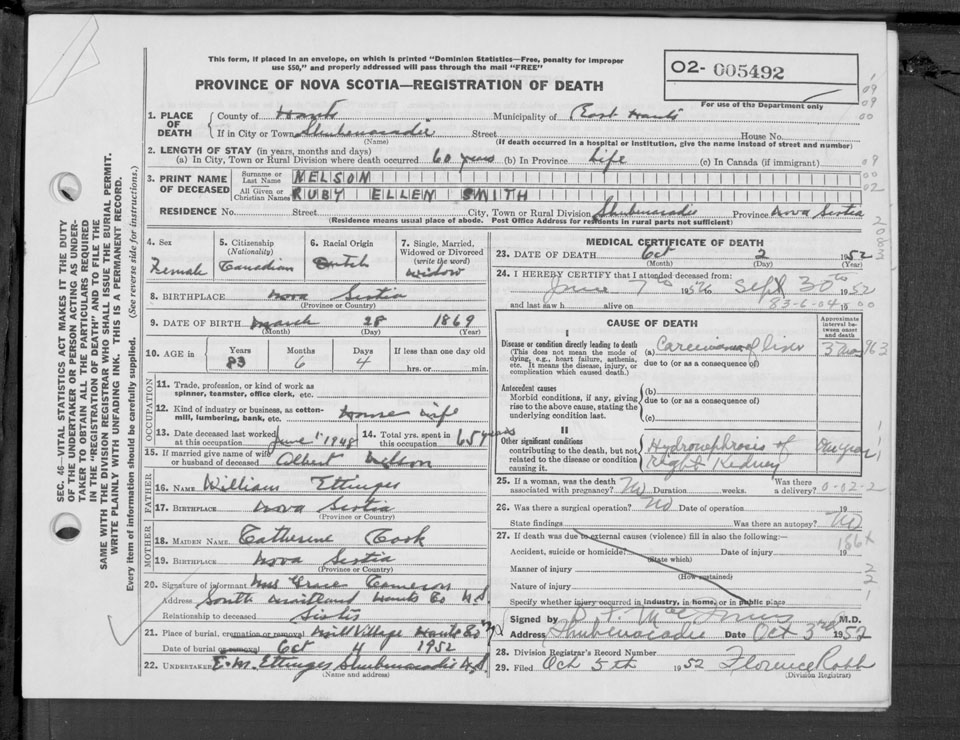 This form, if placed in an envelope, on which is printed "Dominion Statistics—Free, penalty for improper
use $50," and properly addressed will pass through the mail "FREE"
PROVINCE OF NOVA SCOTIA—REGISTRATION OF DEATH
02- 005492
For use of the Department only
1. PLACE OF DEATH
County of Hants Municipality of East Hants
If in City or Town Shubenacadie Street House No.
(Name) (If death occurred in a hospital or institution, give the name instead of street and number)
2. LENGTH OF STAY (in years, months and days)
(a) In City, Town or Rural Division where death occurred 60 years (b) In Province Life (c) In Canada (if immigrant)
3. PRINT NAME OF DECEASED
Surname or Last Name NELSON
All Given or Christian Names RUBY ELLEN SMITH
RESIDENCE No. Street City, Town or Rural Division Shubenacadie Province Nova Scotia
(Residence means usual place of abode. Post Office Address for residents in rural parts not sufficient)
4. Sex Female
5. Citizenship (Nationality) Canadian
6. Racial Origin Dutch
7. Single, Married, Widowed or Divorced (write the word) Widow
8. BIRTHPLACE Nova Scotia
(Province or Country)
9. DATE OF BIRTH March 28 1869
(Month) (Day) (Year)
10. AGE in Years 83 Months 6 Days 4 If less than one day old
hrs. or min.
OCCUPATION
11. Trade, profession, or kind of work as spinner, teamster, office clerk, etc.
12. Kind of industry or business, as cotton-mill, lumbering, bank, etc. House wife
13. Date deceased last worked at this occupation June 1 1948
14. Total yrs. spent in this occupation 65 years
15. If married give name of wife or husband of deceased Albert Nelson
FATHER
16. NAME William Ettinger
17. BIRTHPLACE Nova Scotia
(Province or Country)
MOTHER
18. MAIDEN NAME Catherine Cook
19. BIRTHPLACE Nova Scotia
(Province or Country)
20. Signature of informant Mrs Grace Cameron
Address South Maitland Hants Co N.S.
Relationship to deceased Sister
21. Place of burial, cremation or removal Mill Village Hants Co N.S
Date of burial or removal Oct 4 1952
22. UNDERTAKER E.M. Ettinger Shubenacadie N.S.
(Name and address)
MEDICAL CERTIFICATE OF DEATH
23. DATE OF DEATH Oct 2 1952
(Month) (Day) (Year)
24. I HEREBY CERTIFY that I attended deceased from:
June 7th to Sept 30th 1952
and last saw h alive on 83-6-04 19 00
CAUSE OF DEATH
Approximate interval between onset and death
I
Disease or condition directly leading to death (a) Carcinoma of liver 3 mos
(This does not mean the mode of dying, e.g., heart failure, asthenia, etc. It means the disease, injury, or complication which caused death.)
due to (or as a consequence of)
Antecedent causes
Morbid conditions, if any, giving rise to the above cause, stating the underlying condition last.
(b)
due to (or as a consequence of)
(c)
II
Other significant conditions contributing to the death, but not related to the disease or condition causing it.
Hydronephrosis of
Right Kidney
25. If a woman, was the death associated with pregnancy? No Duration weeks. Was there a delivery? 0-02-2
26. Was there a surgical operation? No Date of operation 19
State findings Was there an autopsy? No
27. If death was due to external causes (violence) fill in also the following:
Accident, suicide or homicide? Date of injury 19
(State which)
Manner of injury
(How sustained)
Nature of injury
Specify whether injury occurred in industry, in home, or in public place
Signed by M.D.
Address Shubenacadie Date Oct 3rd 1952
28. Division Registrar's Record Number
29. Filed Oct 5th 1952 Florence Robb
(Division Registrar)
SEC. 46—VITAL STATISTICS ACT MAKES IT THE DUTY
OF THE UNDERTAKER OR PERSON ACTING AS UNDER-
TAKER TO OBTAIN ALL THE PARTICULARS REQUIRED
IN THE "REGISTRATION OF DEATH" AND TO FILE THE
SAME WITH THE DIVISION REGISTRAR WHO SHALL ISSUE THE BURIAL PERMIT.
WRITE PLAINLY WITH UNFADING INK. THIS IS A PERMANENT RECORD.
Every item of information should be carefully supplied. (See reverse side for instructions.)